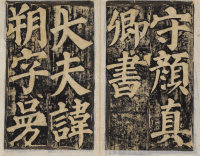 守顏真
卿書
大夫諱
朔字㬅